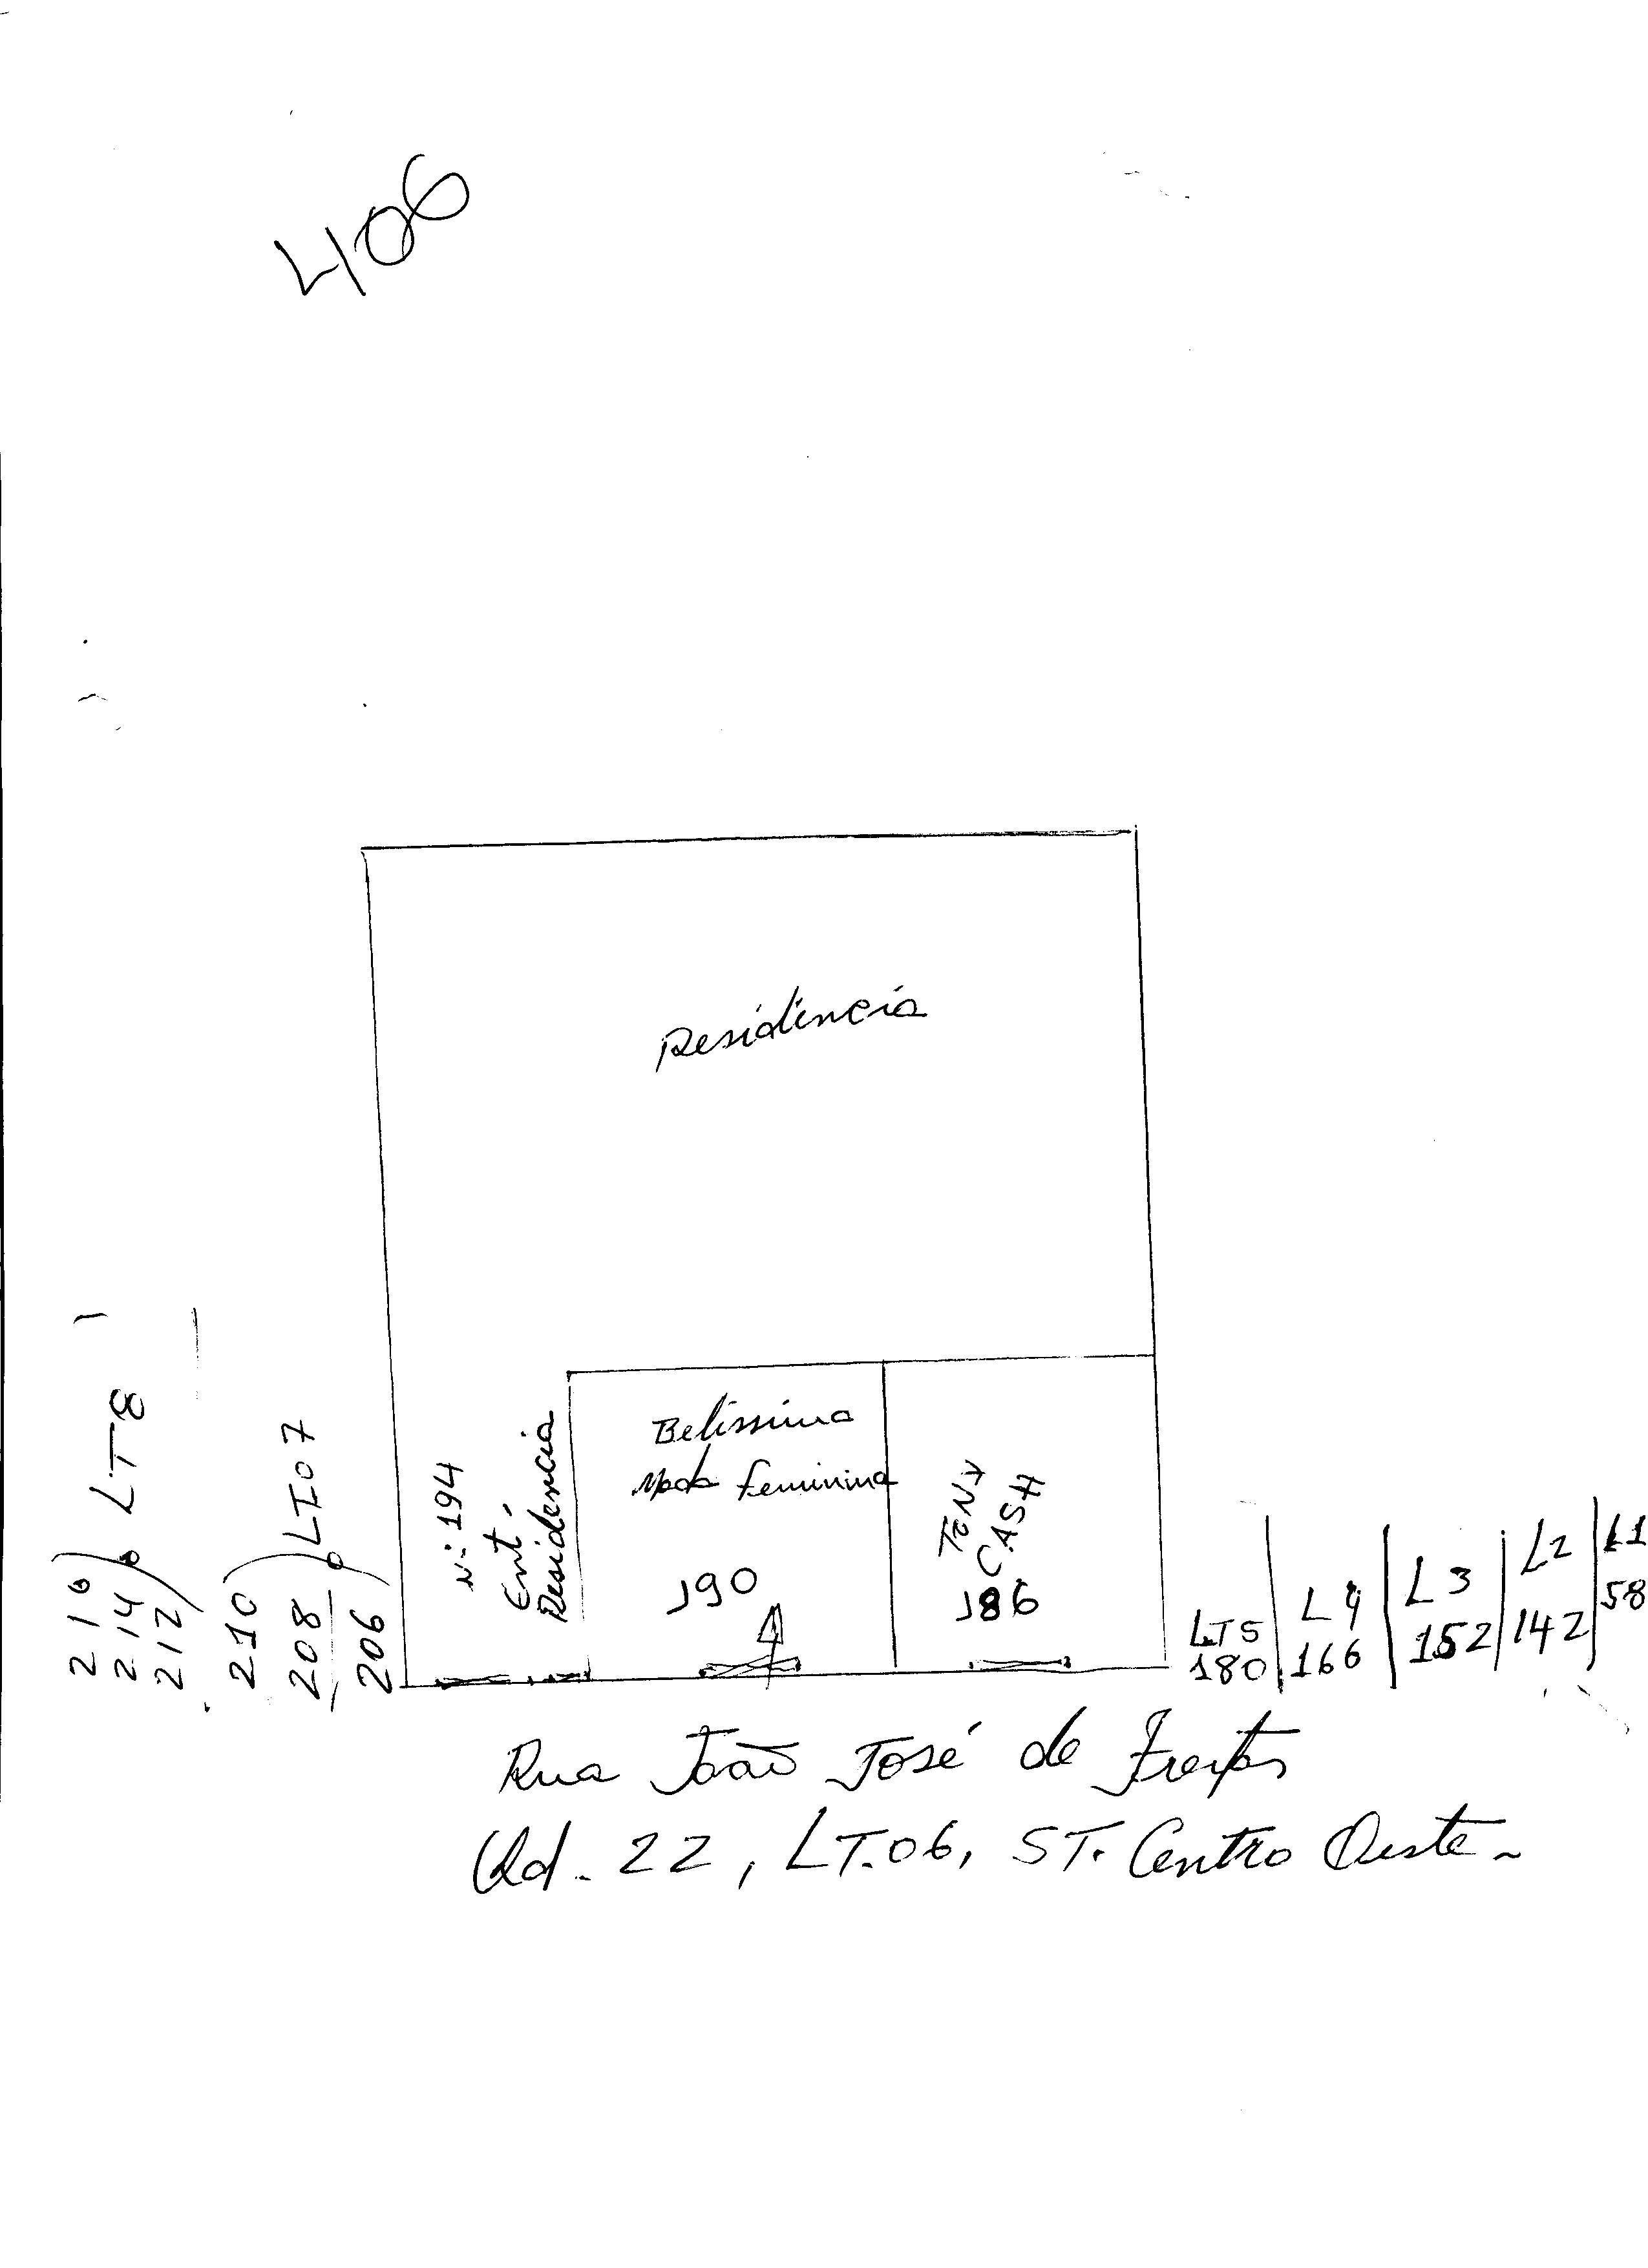 406
Residência
Belissima
Moda Feminina
190
TONY
CASH
186
N: 194
Ent.
Residencia
216
214
212
LT8
210
208
206
LT07
LT5
180
L4
166
L3
152
L2
142
L1
58
Rua João José de Freitas
Qd. 22, LT.06, ST. Centro Oeste